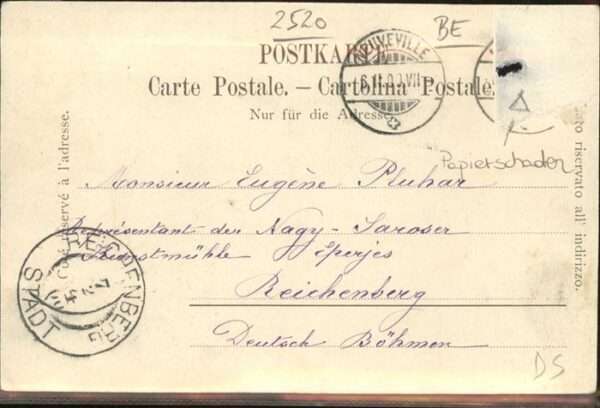 2520
BE
POSTKARTE
Carte Postale. — Cartolina Postale.
Nur für die Adresse.
NEUVEVILLE
Côté réservé à l'adresse.
Lato riservato all' indirizzo.
Papierschaden
Monsieur Eugène Pluhar
Représentant der Nagy-Saroser
Kunstmühle Eperjes
Reichenberg
Deutsch Böhmen
REICHENBERG
STADT
DS